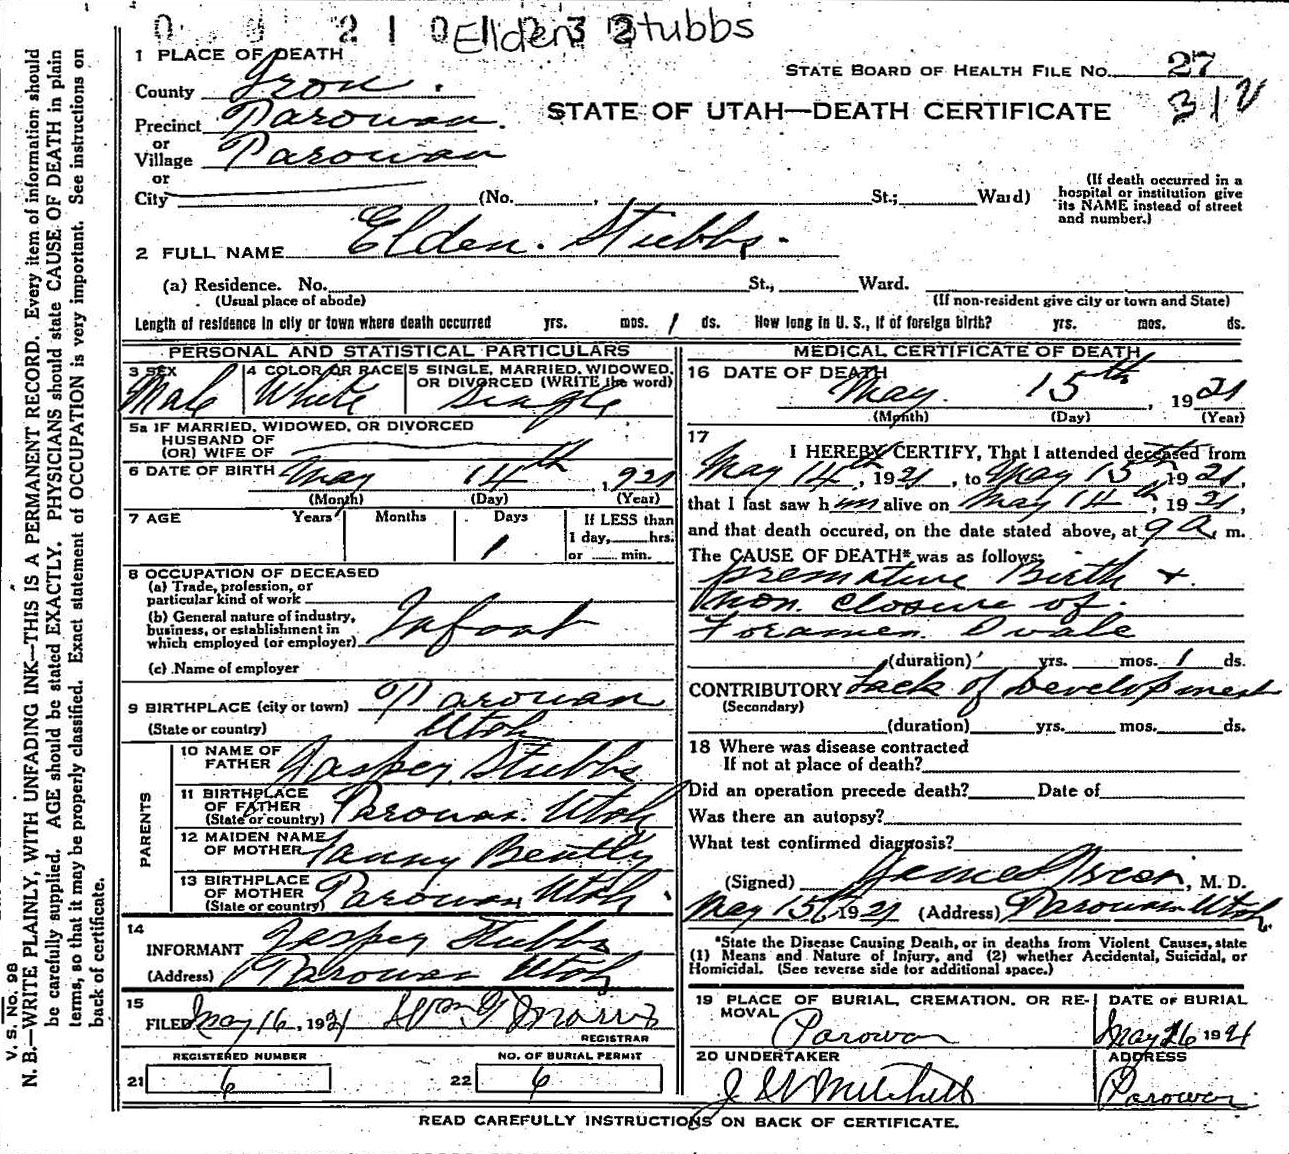 0 9 2 1 0 1 0 3 2
Elden Stubbs
1 PLACE OF DEATH
County Iron.
STATE BOARD OF HEALTH FILE NO. 27
312
Precinct Parowan.
STATE OF UTAH—DEATH CERTIFICATE
or
Village Parowan
or
City (No. , St.; Ward)
(If death occurred in a
hospital or institution give
its NAME instead of street
and number.)
2 FULL NAME Elden. Stubbs.
(a) Residence. No. St., Ward.
(Usual place of abode)
(If non-resident give city or town and State)
Length of residence in city or town where death occurred yrs. mos. 1 ds. How long in U. S., if of foreign birth? yrs. mos. ds.
PERSONAL AND STATISTICAL PARTICULARS
3 SEX
Male
4 COLOR OR RACE
White
5 SINGLE, MARRIED, WIDOWED,
OR DIVORCED (WRITE the word)
Single
5a IF MARRIED, WIDOWED, OR DIVORCED
HUSBAND OF
(OR) WIFE OF
6 DATE OF BIRTH May 14th, 1921
(Month) (Day) (Year)
7 AGE Years Months Days
1
If LESS than
1 day, hrs.
or min.
8 OCCUPATION OF DECEASED
(a) Trade, profession, or
particular kind of work
(b) General nature of industry,
business, or establishment in
which employed (or employer) Infant
(c) Name of employer
9 BIRTHPLACE (city or town) Parowan
(State or country) Utah
PARENTS
10 NAME OF
FATHER Jasper Stubbs
11 BIRTHPLACE
OF FATHER
(State or country) Parowan. Utah
12 MAIDEN NAME
OF MOTHER Fanny Bently
13 BIRTHPLACE
OF MOTHER
(State or country) Parowan Utah.
14
INFORMANT Jasper Stubbs
(Address) Parowan Utah
15
FILED May 16, 1921 Wm G Morris
REGISTRAR
REGISTERED NUMBER
21 6
NO. OF BURIAL PERMIT
22 6
MEDICAL CERTIFICATE OF DEATH
16 DATE OF DEATH
May. 15th, 1921
(Month) (Day) (Year)
17
I HEREBY CERTIFY, That I attended deceased from
May 14th, 1921, to May 15th 1921,
that I last saw him alive on May 14th, 1921,
and that death occured, on the date stated above, at 9 a. m.
The CAUSE OF DEATH* was as follows:
Premature Birth +
non. closure of.
Foramen. Ovale
(duration) yrs. mos. 1 ds.
CONTRIBUTORY Lack of Development
(Secondary)
(duration) yrs. mos. ds.
18 Where was disease contracted
If not at place of death?
Did an operation precede death? Date of
Was there an autopsy?
What test confirmed diagnosis?
(Signed) James Green, M. D.
May 15th 1921 (Address) Parowan Utah.
*State the Disease Causing Death, or in deaths from Violent Causes, state
(1) Means and Nature of Injury, and (2) whether Accidental, Suicidal, or
Homicidal. (See reverse side for additional space.)
19 PLACE OF BURIAL, CREMATION, OR RE-
MOVAL
Parowan
DATE OF BURIAL
May 16 1921
20 UNDERTAKER
J W Mitchell
ADDRESS
Parowan
READ CAREFULLY INSTRUCTIONS ON BACK OF CERTIFICATE.
V. S. No. 98
N. B.—WRITE PLAINLY, WITH UNFADING INK—THIS IS A PERMANENT RECORD. Every item of information should
be carefully supplied. AGE should be stated EXACTLY. PHYSICIANS should state CAUSE OF DEATH in plain
terms, so that it may be properly classified. Exact statement of OCCUPATION is very important. See instructions on
back of certificate.